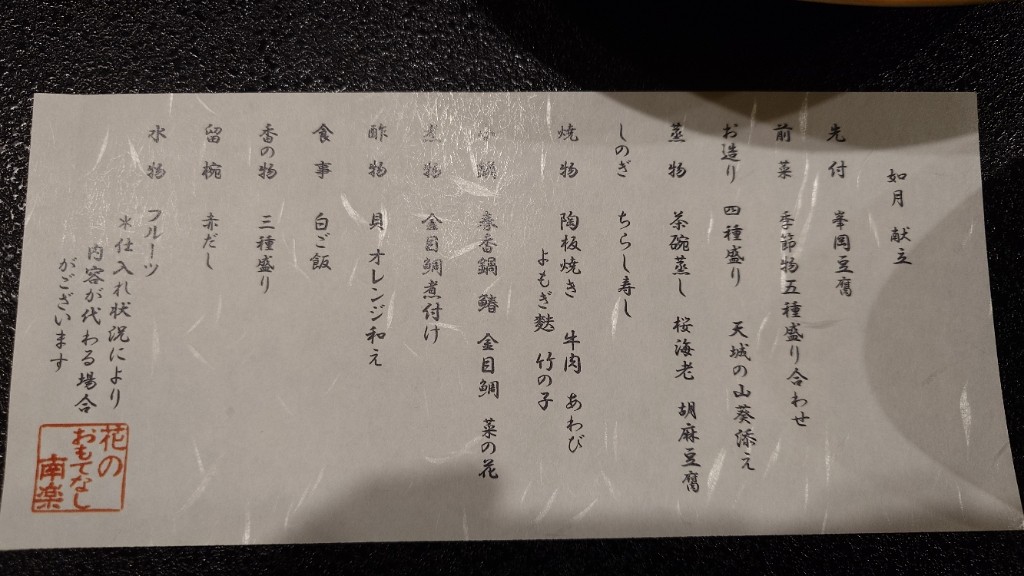 如月 献立
先付 峯岡豆腐
前菜 季節物五種盛り合わせ
お造り 四種盛り 天城の山葵添え
蒸物 茶碗蒸し 桜海老 胡麻豆腐
しのぎ ちらし寿し
焼物 陶板焼き 牛肉 あわび
よもぎ麩 竹の子
小鍋 春香鍋 鰆 金目鯛 菜の花
煮物 金目鯛煮付け
酢物 貝 オレンジ和え
食事 白ご飯
香の物 三種盛り
留椀 赤だし
水物 フルーツ
＊仕入れ状況により
内容が代わる場合
がございます
花の
おもてなし
南楽